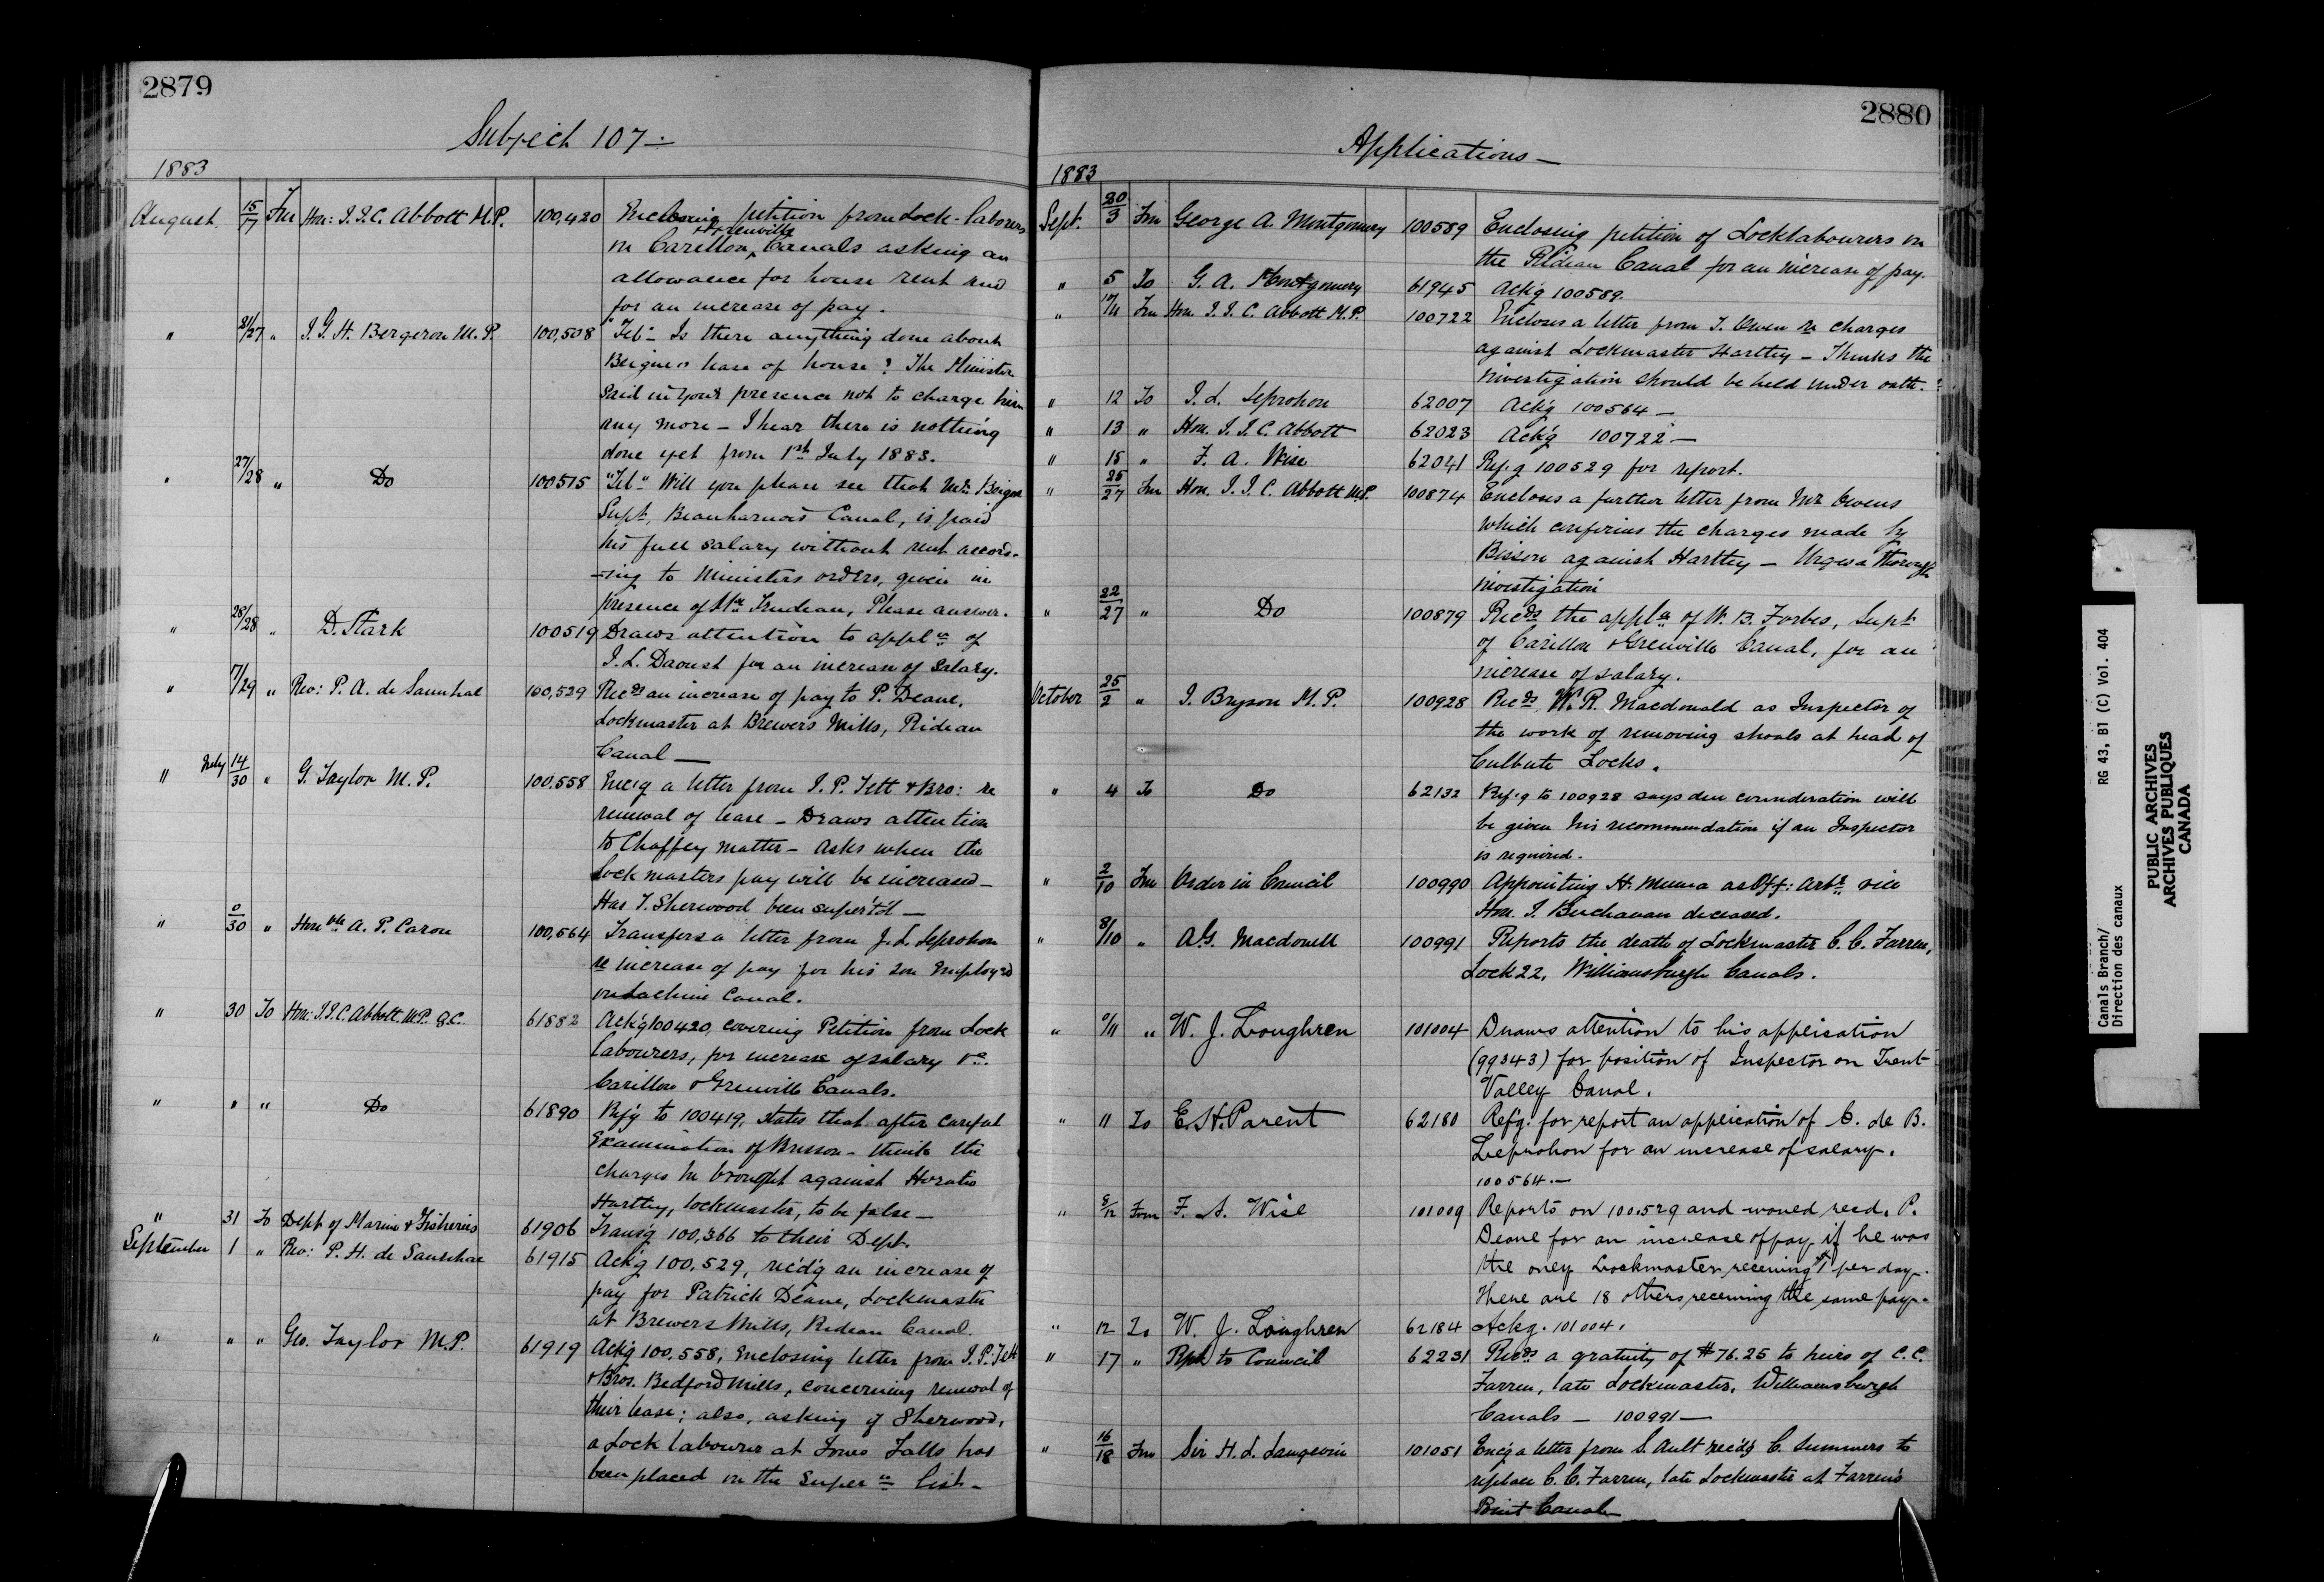 2879
Subject 107 —
1883
August 15/17 Fm Hon: J.J.C. Abbott M.P. 100,420 Enclosing petition from Lock-laborers
on Carillon & Grenville Canals asking an
allowance for house rent and
for an increase of pay.
" 21/27 " J. G. H. Bergeron M.P. 100,508 "Tel"- Is there anything done about
lease of house? The Minister
said in your presence not to charge him
any more — I hear there is nothing
done yet from 1st July 1883.
" 27/28 " Do 100515 "Tel" Will you please see that Mr.
Supt, Beauharnois Canal, is paid
his full salary without rent accord-
-ing to Ministers orders, given in
presence of Mr Trudeau, Please answer.
" 28/28 " D. Stark 100519 Draws attention to appln of
J. L. Daoust for an increase of salary.
" 7/29 " Rev: P. A. de 100,529 Recds an increase of pay to P. Deane,
Lockmaster at Brewers Mills, Rideau
Canal —
" July 14/30 " G. Taylor M.P. 100,558 Enc'g a letter from J. P. Tett & Bro: re
renewal of lease — Draws attention
to Chaffey matter — Asks when the
Lock masters pay will be increased —
Has T. Sherwood been super'td —
" 0/30 " Honble A. P. Caron 100,564 Transfers a letter from J. L. Leprohon
re increase of pay for his son employed
on Lachine Canal.
" 30 To Hon: J.J.C. Abbott. M.P. Q.C. 61882 Ack'g 100420, covering Petition from Lock
labourers, for increase of salary &c.
Carillon & Grenville Canals.
" " " Do 61890 Ref'g to 100419, states that after careful
Examination of Bisson — think the
charges he brought against Horatio
Hartley, lockmaster, to be false —
" 31 To Dept of Marine & Fisheries 61906 Trans'g 100,366 to their Dept.
September 1 " Rev: P. H. de 61915 Ack'g 100,529, rec'd'g an increase of
pay for Patrick Deane, Lockmaster
at Brewers Mills, Rideau Canal.
" " " Geo. Taylor M.P. 61919 Ack'g 100,558, Enclosing letter from J. P. Tett
& Bros. Bedford Mills, concerning renewal of
their lease; also, asking if Sherwood,
a Lock labourer at Jones Falls has
been placed on the Super'n list —
2880
Applications —
1883
Sept. 30/3 Fm George A. Montgomery 100589 Enclosing petition of Locklabourers on
the Rideau Canal for an increase of pay.
" 5 To G. A. Montgomery 61945 Ack'g 100589.
" 10/11 Fm Hon. J. J. C. Abbott M.P. 100722 Encloses a letter from T. Owen re charges
against Lockmaster Hartley — Thinks the
investigation should be held under oath.
" 12 To J. L. Leprohon 62007 Ack'g 100564 —
" 13 " Hon. J. J. C. Abbott 62023 Ack'g 100722 —
" 15 " F. A. Wise 62041 Ref'g 100529 for report.
" 25/27 Fm Hon. J. J. C. Abbott M.P. 100874 Encloses a further letter from Mr Owens
which confirms the charges made by
Bisson against Hartley — Urges a thorough
investigation
" 22/27 " Do 100879 Recds the appln of W. B. Forbes, Supt
of Carillon & Grenville Canal, for an
increase of salary.
October 25/2 " J. Bryson M.P. 100928 Recds W. R. Macdonald as Inspector of
the work of removing shoals at head of
Culbute Locks.
" 4 To Do 62132 Ref'g to 100928 says due consideration will
be given his recommendation if an Inspector
is required.
" 2/10 Fm Order in Council 100990 Appointing H. as Off: Arbr vice
Hon. I. Buchanan deceased.
" 8/10 " A.G. Macdonell 100991 Reports the death of Lockmaster C. C. Farren,
Lock 22, Williamsburgh Canals.
" 9/11 " W. J. Loughren 101004 Draws attention to his application
(99343) for position of Inspector on Trent
Valley Canal.
" 11 To E. H. Parent 62180 Ref'g. for report an application of C. de B.
Leprohon for an increase of salary.
100564. —
" 8/12 From F. A. Wise 101009 Reports on 100.529 and would recd. P.
Deane for an increase of pay if he was
the only Lockmaster receiving $1 per day.
There are 18 others receiving the same pay.
" 12 To W. J. Loughren 62184 Ackg. 101004.
" 17 " Rpt to Council 62231 Recds a gratuity of $76.25 to heirs of C.C.
Farren, late Lockmaster, Williamsburgh
Canals — 100991 —
" 16/18 Fm Sir H. L. Langevin 101051 Enc'g a letter from S. Ault rec'd'g C. Summers to
replace C. C. Farren, late Lockmaster at Farren's
Point Canal
Canals Branch/
Direction des canaux
RG 43, B1 (C) Vol. 404
PUBLIC ARCHIVES
ARCHIVES PUBLIQUES
CANADA